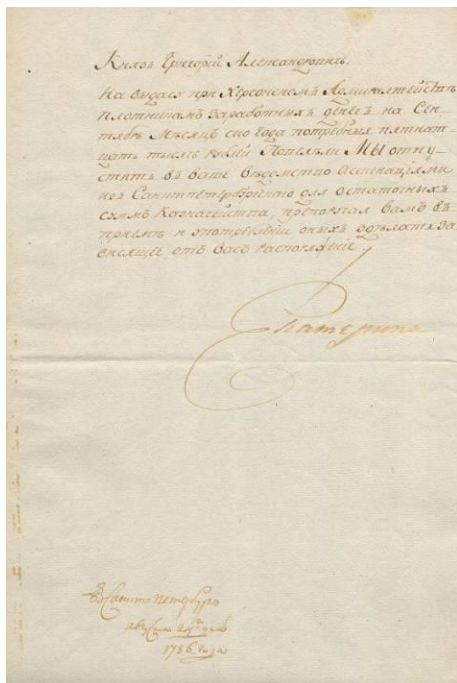 Князь Григорий Александровичь.
На выдачу при Херсонскомъ Адмиралтействѣ
плотникамъ заработныхъ денегъ на Сен-
тябрь Мѣсяцъ сего года потребныя пятнат-
цать тысячь рублей Повелѣли МЫ отпу-
стить въ ваше вѣдомство Ассигнаціями
изъ Санктпетербургскаго для остаточныхъ
суммъ Казначейства, препоручая вамъ въ
приемѣ и употребленіи оныхъ здѣлать за
висящее отъ васъ распоряженіе.
Екатерина
Въ Санктъ Петербургѣ
августа 24го дня
1786 года